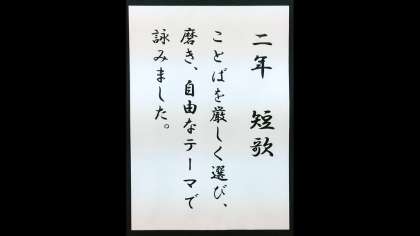 二年 短歌
ことばを厳しく選び、
磨き、自由なテーマで
詠みました。